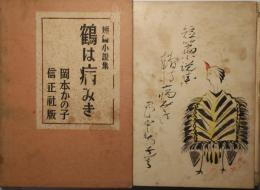 短篇小説集
鶴は病みき
岡本かの子
信正社版
短篇小説集
鶴は病みき